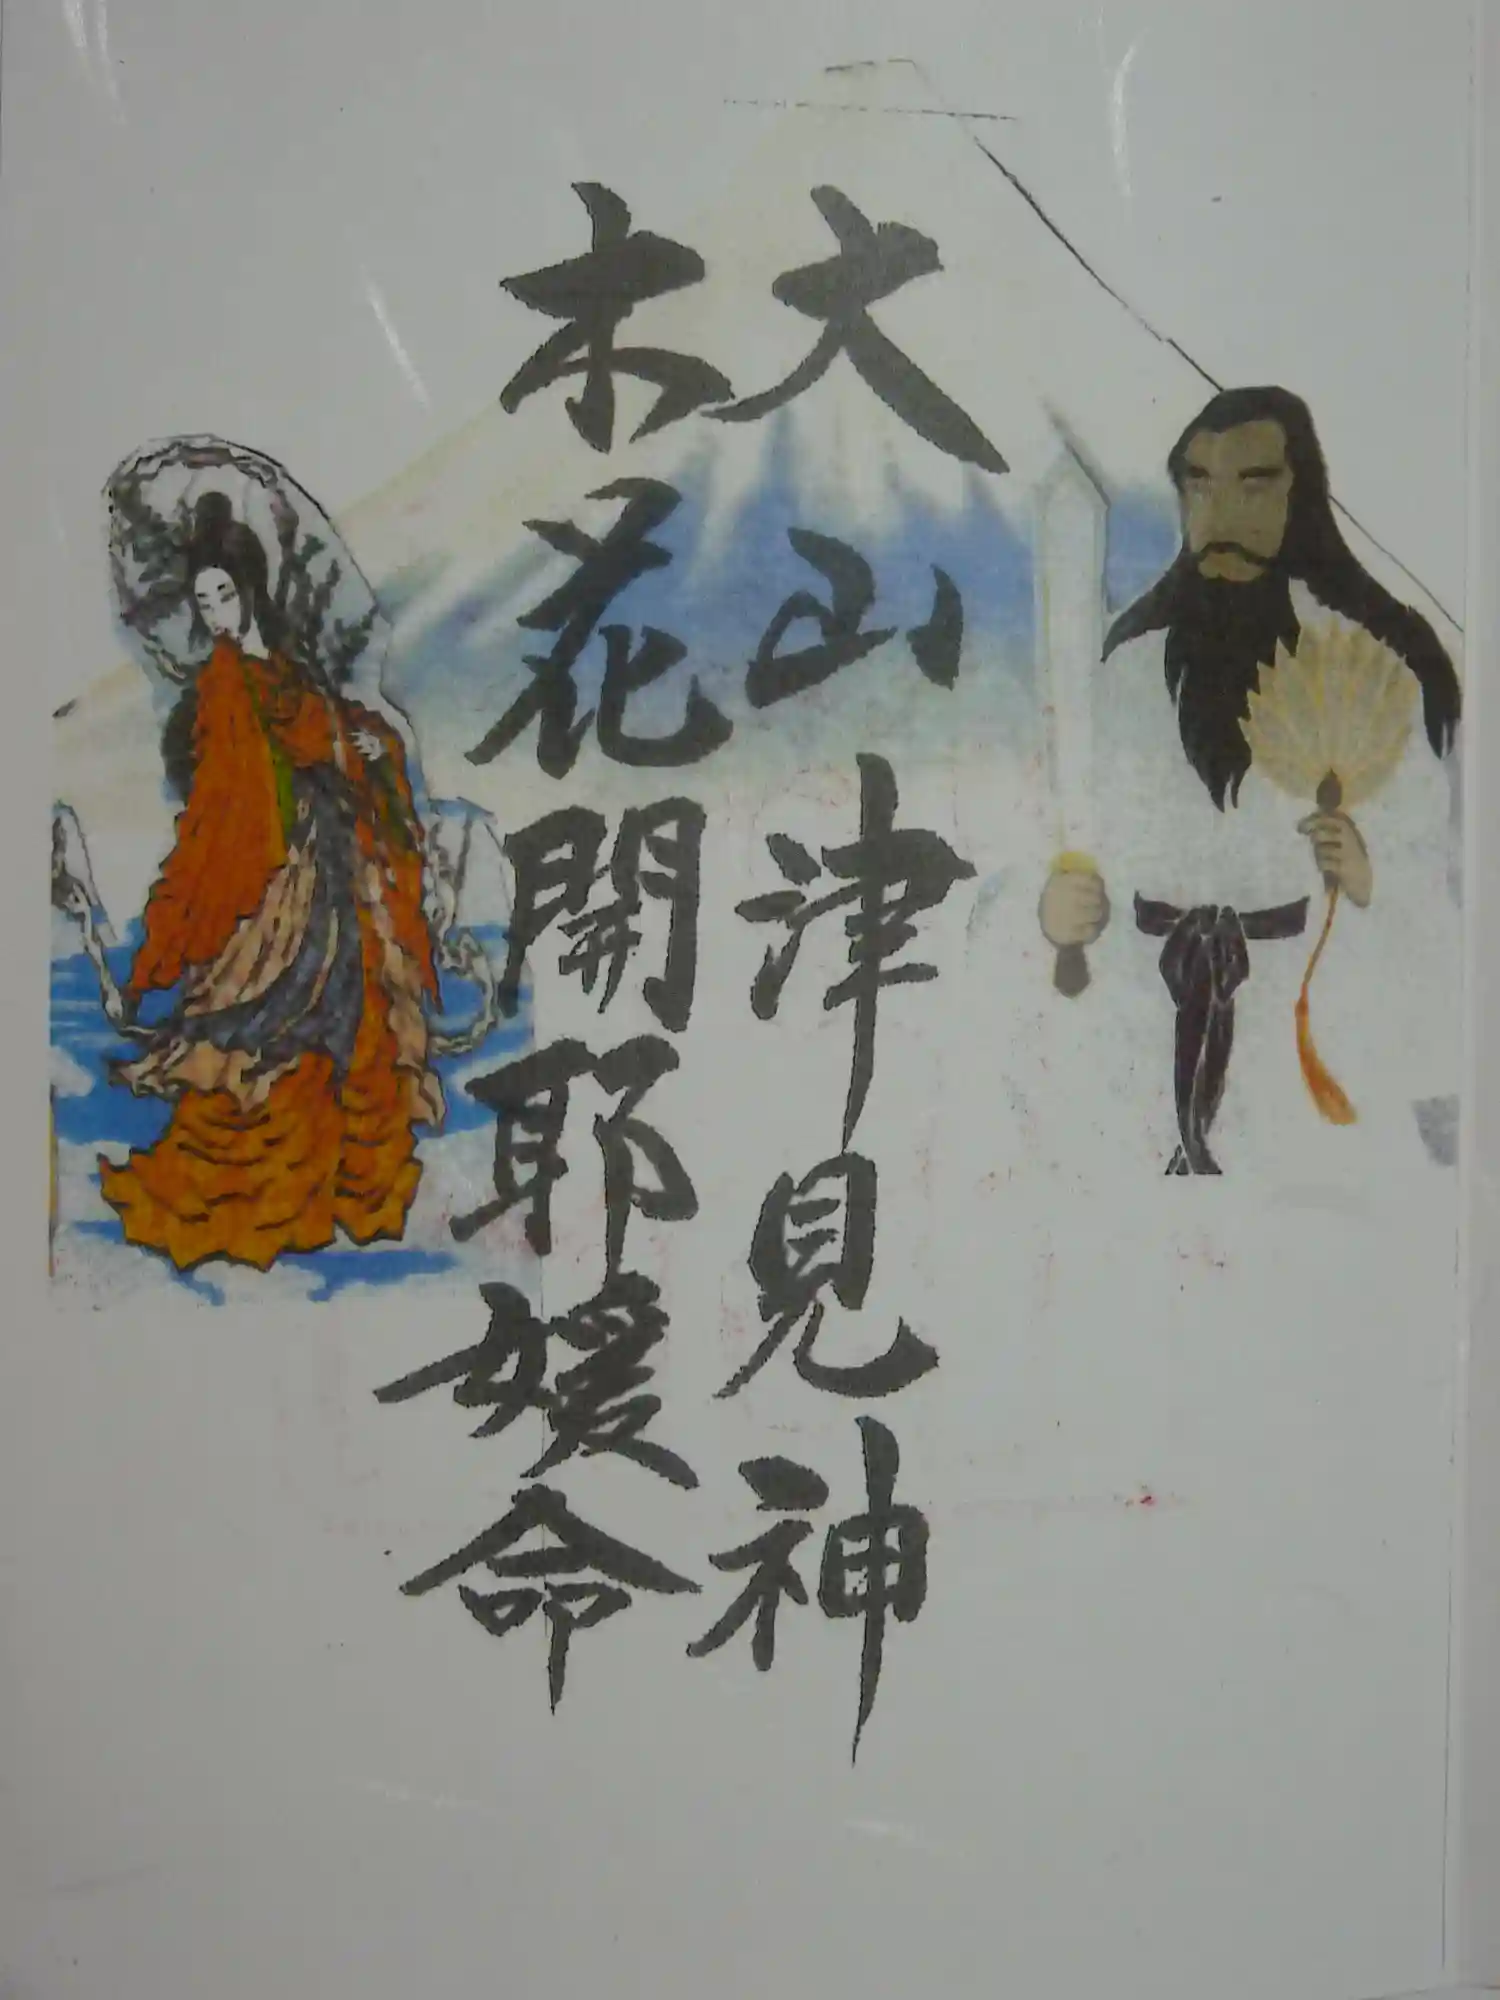 大山津見神
木花開耶媛命